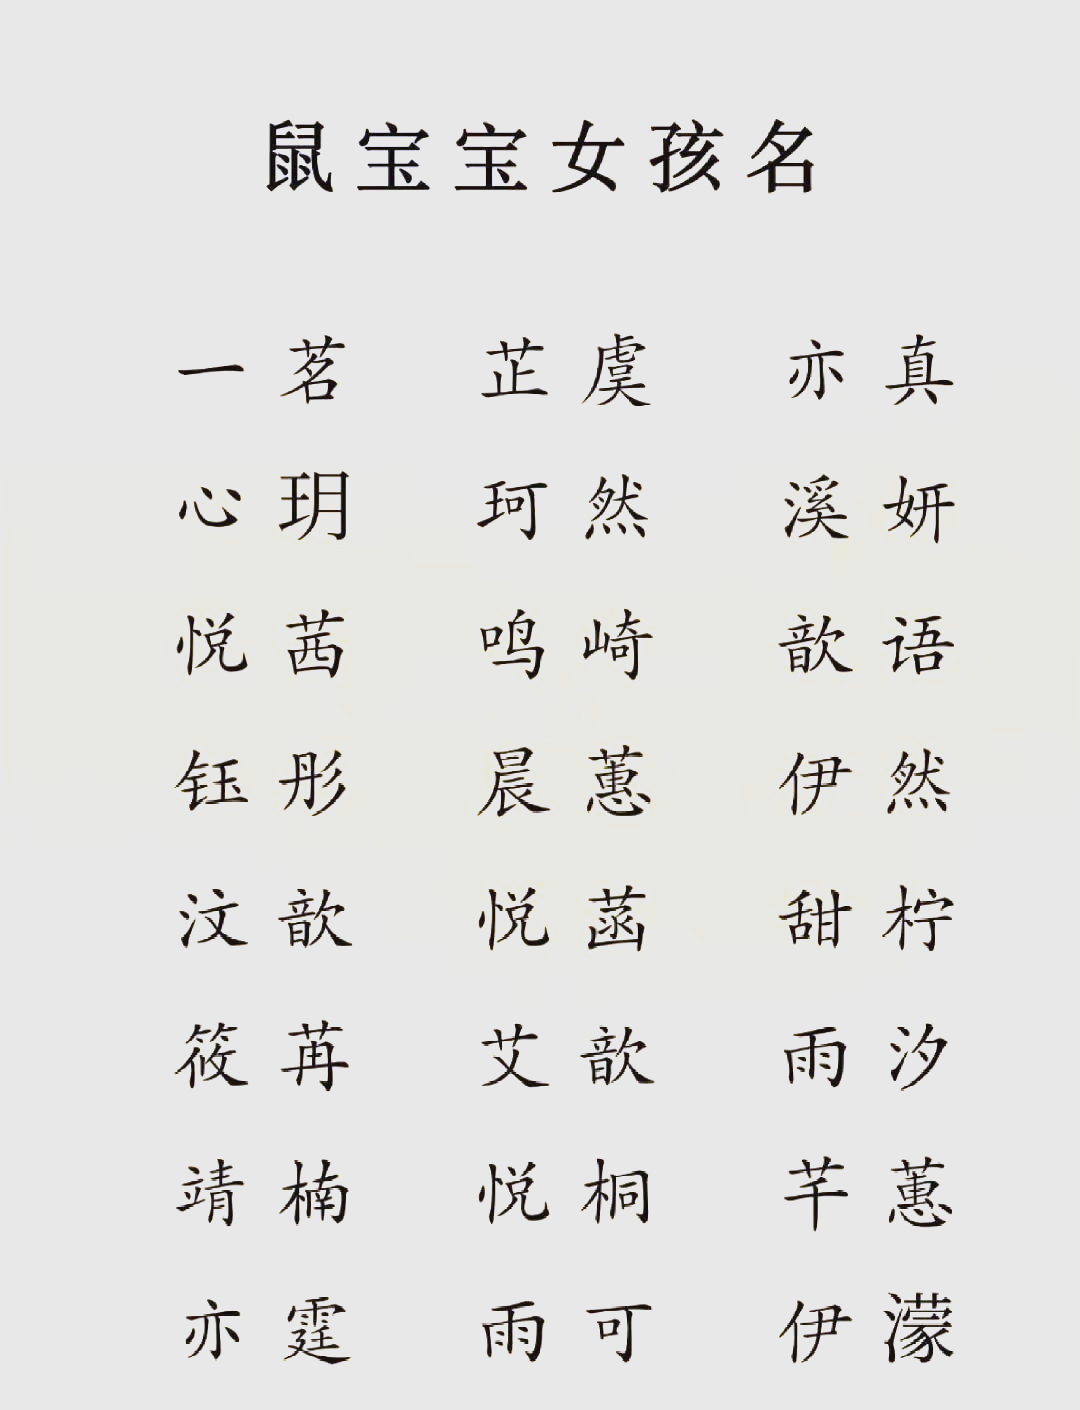 鼠宝宝女孩名
一茗 芷虞 亦真
心玥 珂然 溪妍
悦茜 鸣崎 歆语
钰彤 晨蕙 伊然
汶歆 悦菡 甜柠
筱苒 艾歆 雨汐
靖楠 悦桐 芊蕙
亦霆 雨可 伊濛